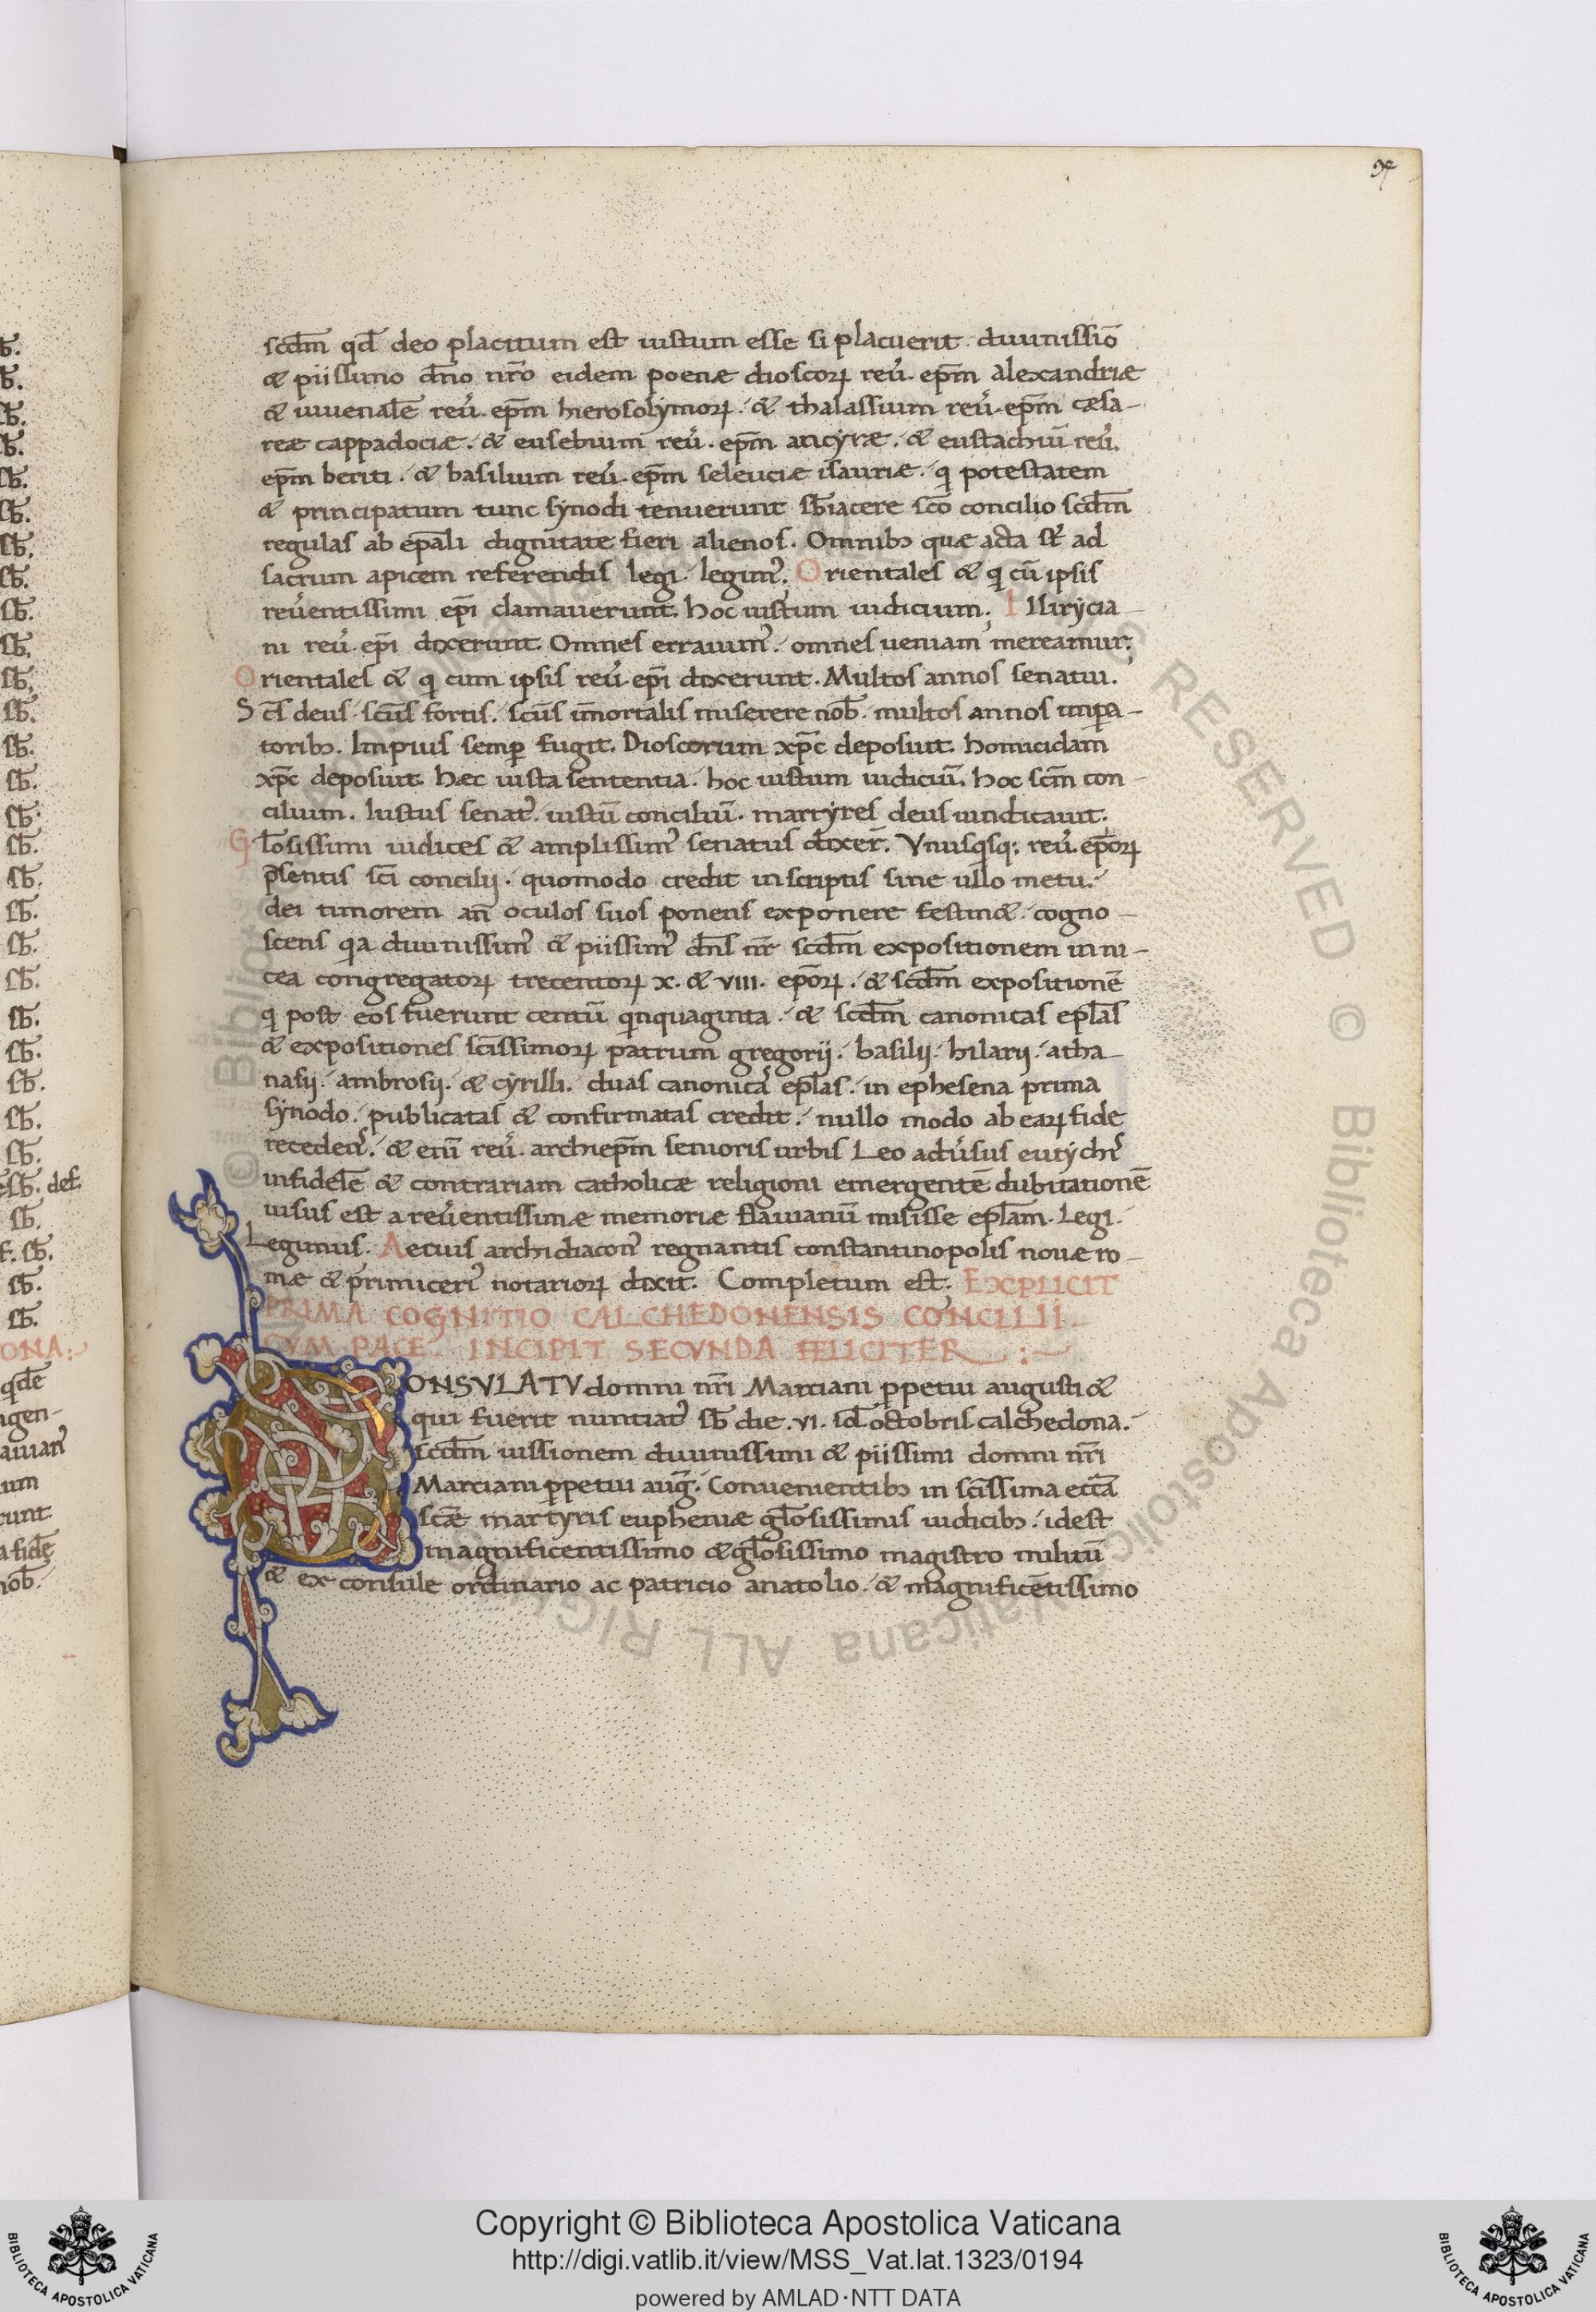 97
scdm̄ qd̄ deo placitum est iustum esse si placuerit. diuinissīo
& piissimo dn̄o nr̄o eidem poenæ dioscoꝝ reu̓. ep̄m alexandriæ
& iuuenalē reu̓. ep̄m hierosolymoꝝ. & thalassium reu̓. ep̄m cæsa-
reæ cappadociæ. & eusebium reu̓. ep̄m ancyræ. & eustachiū reu̓.
ep̄m beriti. & basilium reu̓. ep̄m seleuciæ isauriæ. qͥ potestatem
& principatum tunc synodi tenuerunt sb̄iacere sc̄o concilio scdm̄
regulas ab ep̄ali dignitate fieri alienos. Omnibꝫ quæ acta st̓ ad
sacrum apicem referendis legi. legim᾿. Orientales & qͥ cū ipsis
reu̓entissimi ep̄i clamauerunt. hoc iustum iudicium. Illirycia-
ni reu̓. ep̄i dixerunt. Omnes errauim᾿. omnes ueniam mereamur.
Orientales & qͥ cum ipsis reu̓. ep̄i dixerunt. Multos annos senatui.
Sc̄s deus. scūs fortis. scūs īmortalis miserere nob̄. multos annos imꝑa-
toribꝫ. Impius semꝑ fugit. Dioscorum xp̄c deposuit. homicidam
xp̄c deposuit. hæc iusta sententia. hoc iustum iudiciū. hoc scm̄ con-
cilium. Iustus senat᾿. iustū conciliū. martyres deus uindicauit.
Gl̄osissimi iudices & amplissim᾿ senatus dixer̄. Vnusqͥsq; reu̓. ep̄oꝝ
p̄sentis sc̄i concilii. quomodo credit in scriptis sine ullo metu.
dei timorem an̄ oculos suos ponens exponere festin&. cogno-
scens qͥa diuinissim᾿ & piissim᾿ dn̄s nr̄ scdm̄ expositionem in ni-
cea congregatoꝝ trecentoꝝ x. & VIII. ep̄oꝝ. & scdm̄ expositionē
qͥ post eos fuerunt centū qͥnquaginta. & scdm̄ canonicas epl̄as
& expositiones sc̄issimoꝝ patrum gregorij. basilij. hilarij. atha-
nasij. ambrosij. & cyrilli. duas canonica᾿ epl̄as. in ephesena prima
synodo. publicatas & confirmatas credit. nullo modo ab eaꝝ fide
receden᾿. & enī reu̓. archiep̄m senioris urbis Leo adu̓sus eutych᾿
infidelē & contrariam catholicæ religioni emergentē dubitationē
uisus est a reu̓entissimæ memoriæ flauianū misisse epl̄am. Legi.
Legimus. Aetius archidiacon᾿ regnantis constantinopolis nouæ ro-
mæ & primiceri᾿ notarioꝝ dixit. Completum est. EXPLICIT
PRIMA COGNITIO CALCHEDONENSIS CONCILII.
CVM PACE. INCIPIT SECVNDA FELICITER
CONSVLATV domni nr̄i Marciani ꝑpetui augusti &
qui fuerit nuntiat᾿ sb̄ die .VI. id̄ octobris calchedona.
scdm̄ iussionem diuinissimi & piissimi domni nr̄i
Marciani ꝑpetui aug̓. Conuenientibꝫ in sc̄issima eccl̄a
sc̄æ martyris eupheniæ gl̄osissimis iudicibꝫ. idest
magnificentissimo & gl̄osissimo magistro militū
& ex consule ordinario ac patricio anatolio. & magnificētissimo
Copyright © Biblioteca Apostolica Vaticana
http://digi.vatlib.it/view/MSS_Vat.lat.1323/0194
powered by AMLAD·NTT DATA